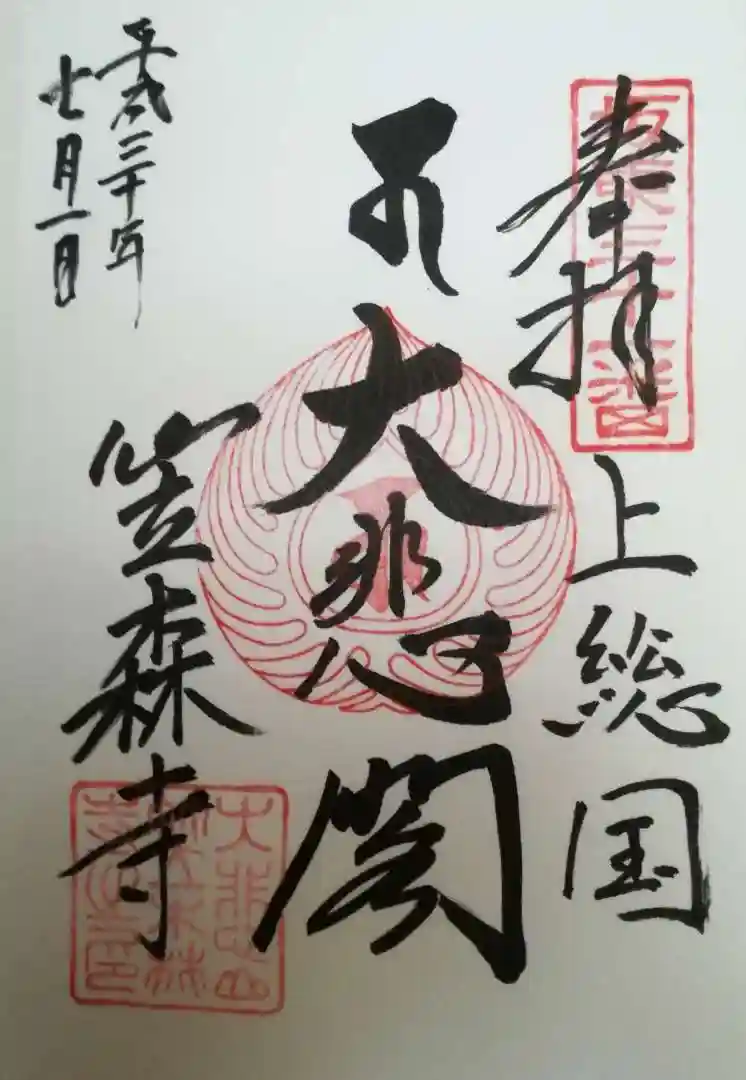 奉拝
上総国
大悲閣
笠森寺
平成三十年
七月一日
坂東三十一番